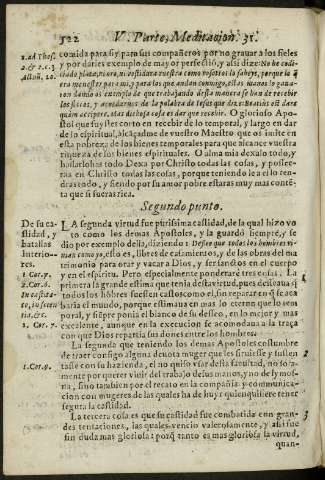 522 V. Parte, Meditacion. 31.
1. ad Thes.
2. & 2. c. 3.
Actoū. 20.
comida para si y para sus compañeros por no grauar a los fieles
y por darles exemplo de mayor perfectiō, y assi dize: No he codi-
ciado plata, ni oro, ni vestidura vuestra como vosotros lo sabeys, porque lo q̃
era menester para mi, y para los que andan conmigo, estas manos lo gana-
ron dandoos exemplo de que trabajando desta manera se han de receuir
los flacos, y acordarnos de la palabra de Iesus que dize: Beatius est dare
quàm accipere, mas dichosa cosa es dar que receibir. O glorioso Apo-
stol que fuystes corto en recebir de lo temporal, y largo en dar
de lo espiritual, alcáçadme de vuestro Maestro que os imite en
esta pobreza de los bienes temporales para que alcance vuestra
riqueza de los bienes espirituales. O alma mia dexalo todo, y
hallarlohas todo. Dexa por Christo todas las cosas, y posseē-
ras en Christo todas las cosas, porque teniendole a el lo ten-
dras todo, y siendo por su amor pobre estaras muy mas conté-
ta que si fueras rica.
Segundo punto.
De su ca-
stidad, y
batallas
Interio-
res.
1. Cor. 7.
2. Cor. 6.
1. Cor. 7.
1. Cor. 9.
LA segunda virtud fue purissima castidad, de la qual hizo vo
to como los demas Apostoles, y la guardó siempre, y se
dio por exemplo della, diziendo: Deseo que todos los hombres vi-
uan como yo, esto es, libres de casamientos, y de las obras del ma-
trimonio para orar y vacar a Dios, y ser sandos en el cuerpo
y en el espiritu. Pero especialmente ponderarè tres cosas. La
primera la grande estima que tenia desta virtud, pues desseaua q̃
todos los hōbres fuessen castos como el, sin reparar en q̃ se aca
baria el mundo, porque estimaua en mas lo eterno que lo tem
poral, y siēpre ponia el blanco de su desseo, en lo mejor y mas
excelente, aunque en la execucion se acomodaua a la traça
con que Dios repartia sus dones entre los hombres.
La segunda que teniendo los demas Apostoles costumbre
de traer consigo alguna deuota muger que les siruiesse y susten
tasse con su hazienda, el no quiso vsar desta facultad, no sola-
mente por querer viuir del trabajo de sus manos, y no de lymos-
na, sino tambien por el recato en la compañia y communica-
cion con mugeres de las quales ha de huyr quienquisiere tener
segura la castidad.
La tercera cosa es que su castidad fue combatida con gran-
des tentaciones, las quales vencio valerosamente, y assi fue
sin duda mas gloriosa: porq̃ tanto es mas gloriosa la virtud,
quan-